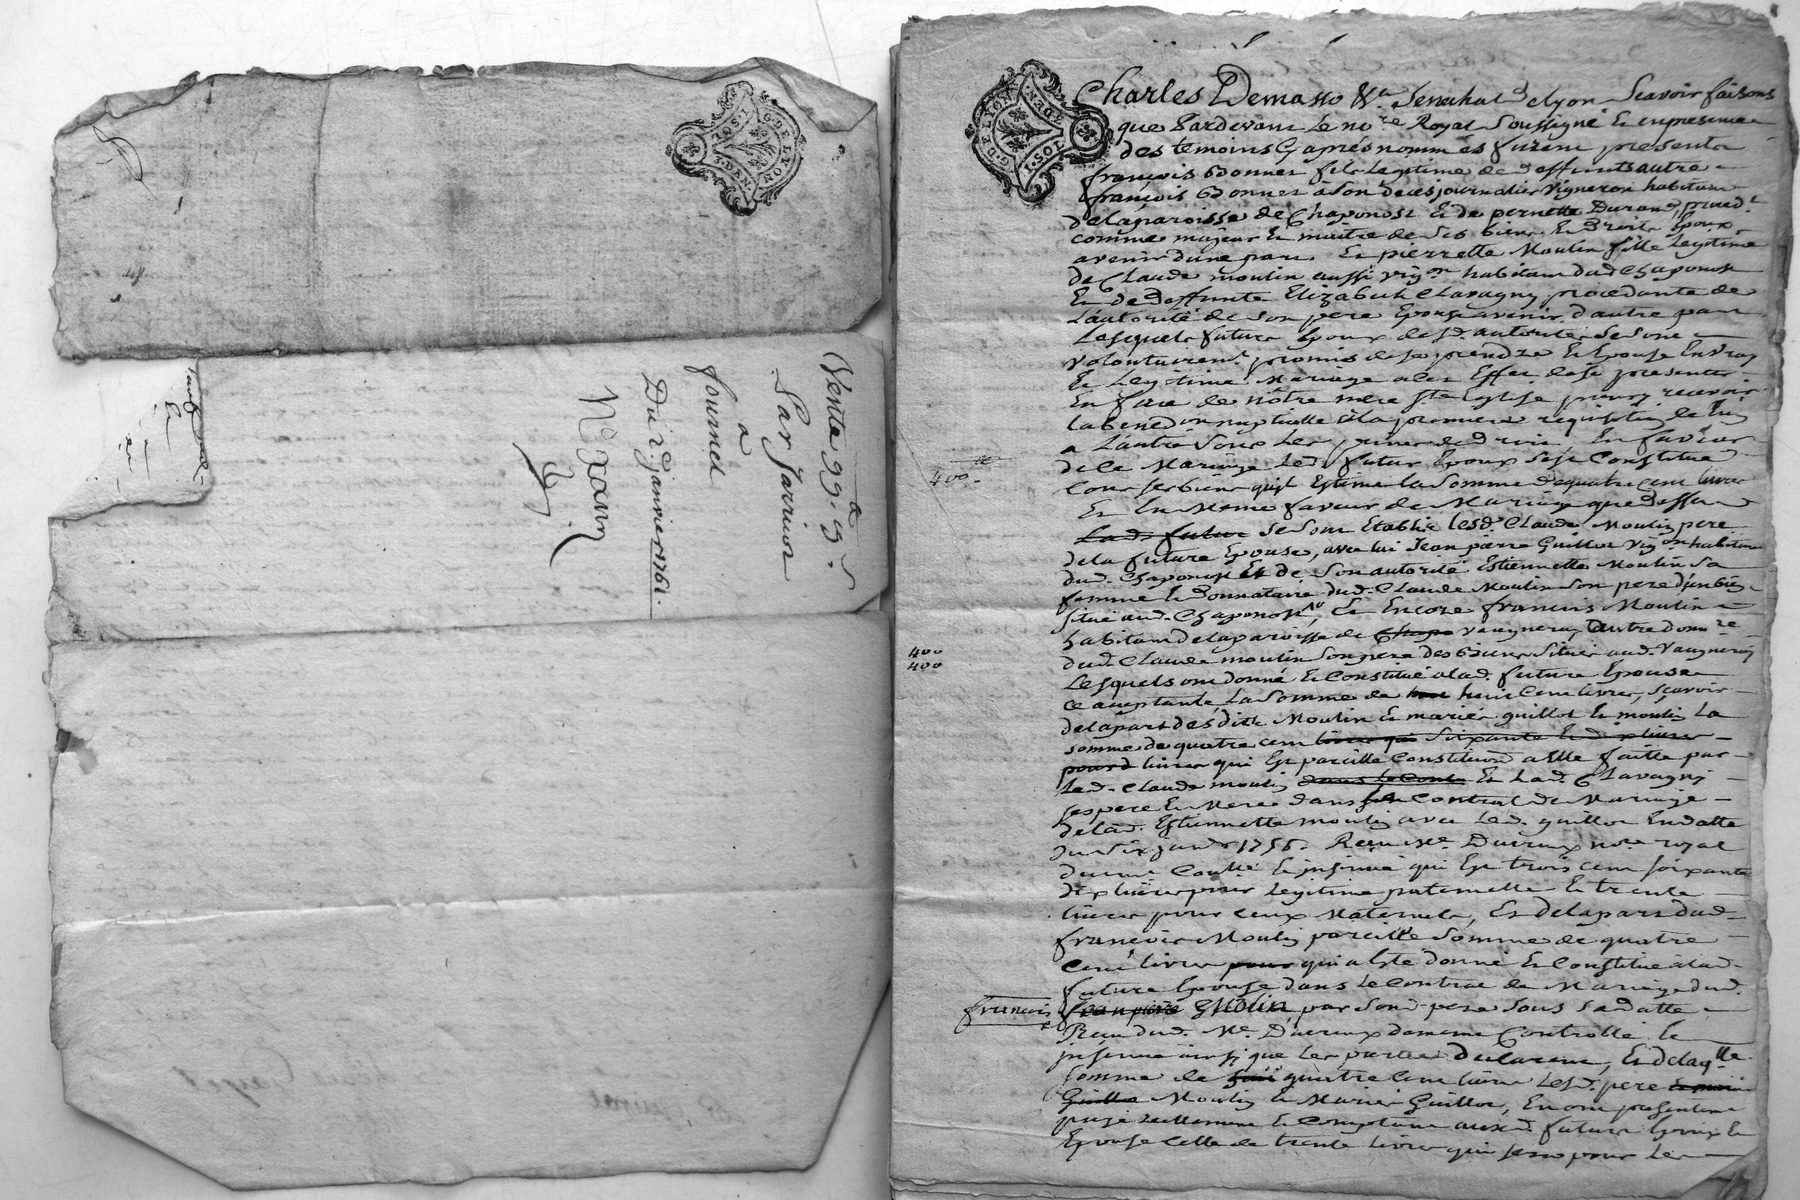 G. DE LYON
1. SOL
3. DEN.
Vente 99. 
Par Jarrinon
a
fournel
Du 2e. janvier 1761.
G. DE LYON
1. SOL
DEN.
Charles Demasso &a Senechal de lyon Scavoir faisons
que Pardevant Le nore Royal Soussigné Et en presence
des temoins Cy apres nommes furent presents
françois Bonnet fils Legitime de deffunts autre
françois Bonnet à son deces journalier Vigneron habitant
de la paroisse de Chaponost Et de pernette Durand, proced.t
comme majeur Et maitre de ses biens Et Droits Epoux
avenir d'une part Et pierrette Moulin fille Legitime
de Claude moulin aussi vigon habitant dud Chaponost
Et de deffunte Elizabeth Clavagny procedante de
L'autorité de son pere Epouse avenir d'autre part
Lesquels futurs Epoux de sd. autorité se sont
volontairemt promis de se prendre Et Epouser En vray
Et Legitime Mariage a les Effet de se presenter
En face de notre mere Ste Eglise pour y recevoir
la benedon nuptialle a la premiere requisition de L'un
a L'autre sous les peines de droit En faveur
de ce Mariage Led. futur Epoux s'est Constitué
tous ses biens qu'il Estime la somme de quatre cent livres
400
Et En Meme faveur de Mariage que dessus
La de future se sont Etablis Lesd. Claude Moulin pere
de la future Epouse, avec lui Jean pierre Guillot Vigon habitant
dud. Chaponost Et de son autorité Estiennette Moulin sa
femme Et Donnataire dud. Claude Moulin son pere d'un bien
situé aud. Chaponost, Et Encore francois Moulin
habitant de la paroisse de Chapo vaugneray autre donre
dud. Claude moulin son pere des biens situés aud. Vaugneray
400
400
Lesquels ont donné Et Constitué a lad. future Epouse
ce acceptante, La somme de huit cent livres, scavoir
de la part desdits Moulin Et mariés guillot Et moulin La
somme de quatre cent livres qui soixante Et dix livres
pour d livres qui Est pareille Constitution a Elle faitte par
Led. Claude moulin dans le cont Et Lad. Clavagny
ses pere Et Mere dans son Contrat de Mariage
de lad. Estiennette moulin avec Led. guillot En datte
du six janr 1756. Recu Me. Ducreux nore royal
duement Contlé Et insinué qui Est trois cent soixante
dix livres pour Legitime paternelle Et trente
livres pour ceux Maternels, Et de la part dud.
françois Moulin pareille somme de quatre
cent livres pour qui a Eté donné Et Constitué a lad.
future Epouse dans Le contrat de Mariage dud.
françois
jean pierre Molin par son d. pere sous sa datte
Recu dud. Me. Ducreux de meme Controllé Et
insinué ainsi que Les parties declarent, Et de laqlle
somme de quatre cent livres Lesd. pere
Guillo Moulin Et Mariés Guillot, En ont presentement
payé reellement Et comptant auxd. futurs Epoux Et
Epouse celle de trente livres qui sera pour Les